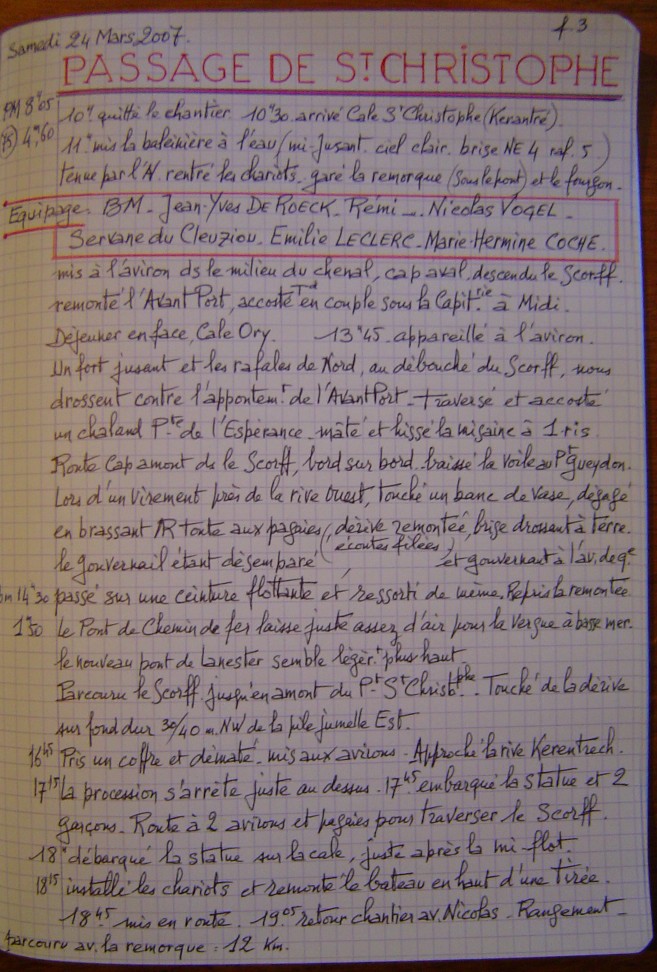 f 3
Samedi 24 Mars 2007.
PASSAGE DE ST CHRISTOPHE
PM 8h05 10h quitté le chantier 10h30 arrivé Cale St Christophe (Kerantré).
(75) 4m60 11h mis la baleinière à l'eau (mi-jusant. ciel clair. brise NE 4 raf. 5.)
tenue par l'N. rentré les chariots. garé la remorque (sous le pont) et le fourgon.
Equipage. BM. Jean-Yves DE ROECK. Rémi _. Nicolas VOGEL.
Servane du Cleuziou. Emilie LECLERC. Marie-Hermine COCHE.
mis à l'aviron ds le milieu du chenal, cap aval. descendu le Scorff.
remonté l'Avant Port, accosté Td en couple sous la Capit.rie à Midi.
Déjeuner en face, Cale Ory. 13h45. appareillé à l'aviron.
Un fort jusant et les rafales de Nord, au débouché du Scorff, nous
drossent contre l'appontem.t de l'Avant Port. traversé et accosté
un chaland P.te de l'Espérance. mâté et hissé la misaine à 1 ris.
Route Cap amont ds le Scorff, bord sur bord. baissé la voile au Pt Gueydon.
Lors d'un virement près de la rive Ouest, touché un banc de vase, dégagé
en brassant AR toute aux pagaies (dérive remontée, brise drossant à terre.
le gouvernail étant désemparé écoutes filées) et gouvernant à l'av. de qe
bm 14h30 passé sur une ceinture flottante et ressorti de même. Repris la remontée
1m50 le Pont de Chemin de fer laisse juste assez d'air pour la vergue à basse mer.
le nouveau pont de Lanester semble légèr.t plus haut.
Parcouru le Scorff jusqu'en amont du P.t St Christ.phe. Touché de la dérive
sur fond dur 30/40 m. NW de la pile jumelle Est.
16h45 Pris un coffre et démâté. mis aux avirons. Approché la rive Kerentrech.
17h15 la procession s'arrête juste au dessus. 17h45 embarqué la statue et 2
garçons. Route à 2 avirons et pagaies pour traverser le Scorff.
18h débarqué la statue sur la cale, juste après la mi-flot.
18h15 installé les chariots et remonté le bateau en haut d'une tirée.
18h45 mis en route. 19h05 retour chantier av. Nicolas. Rangement.
parcouru av. la remorque : 12 km.